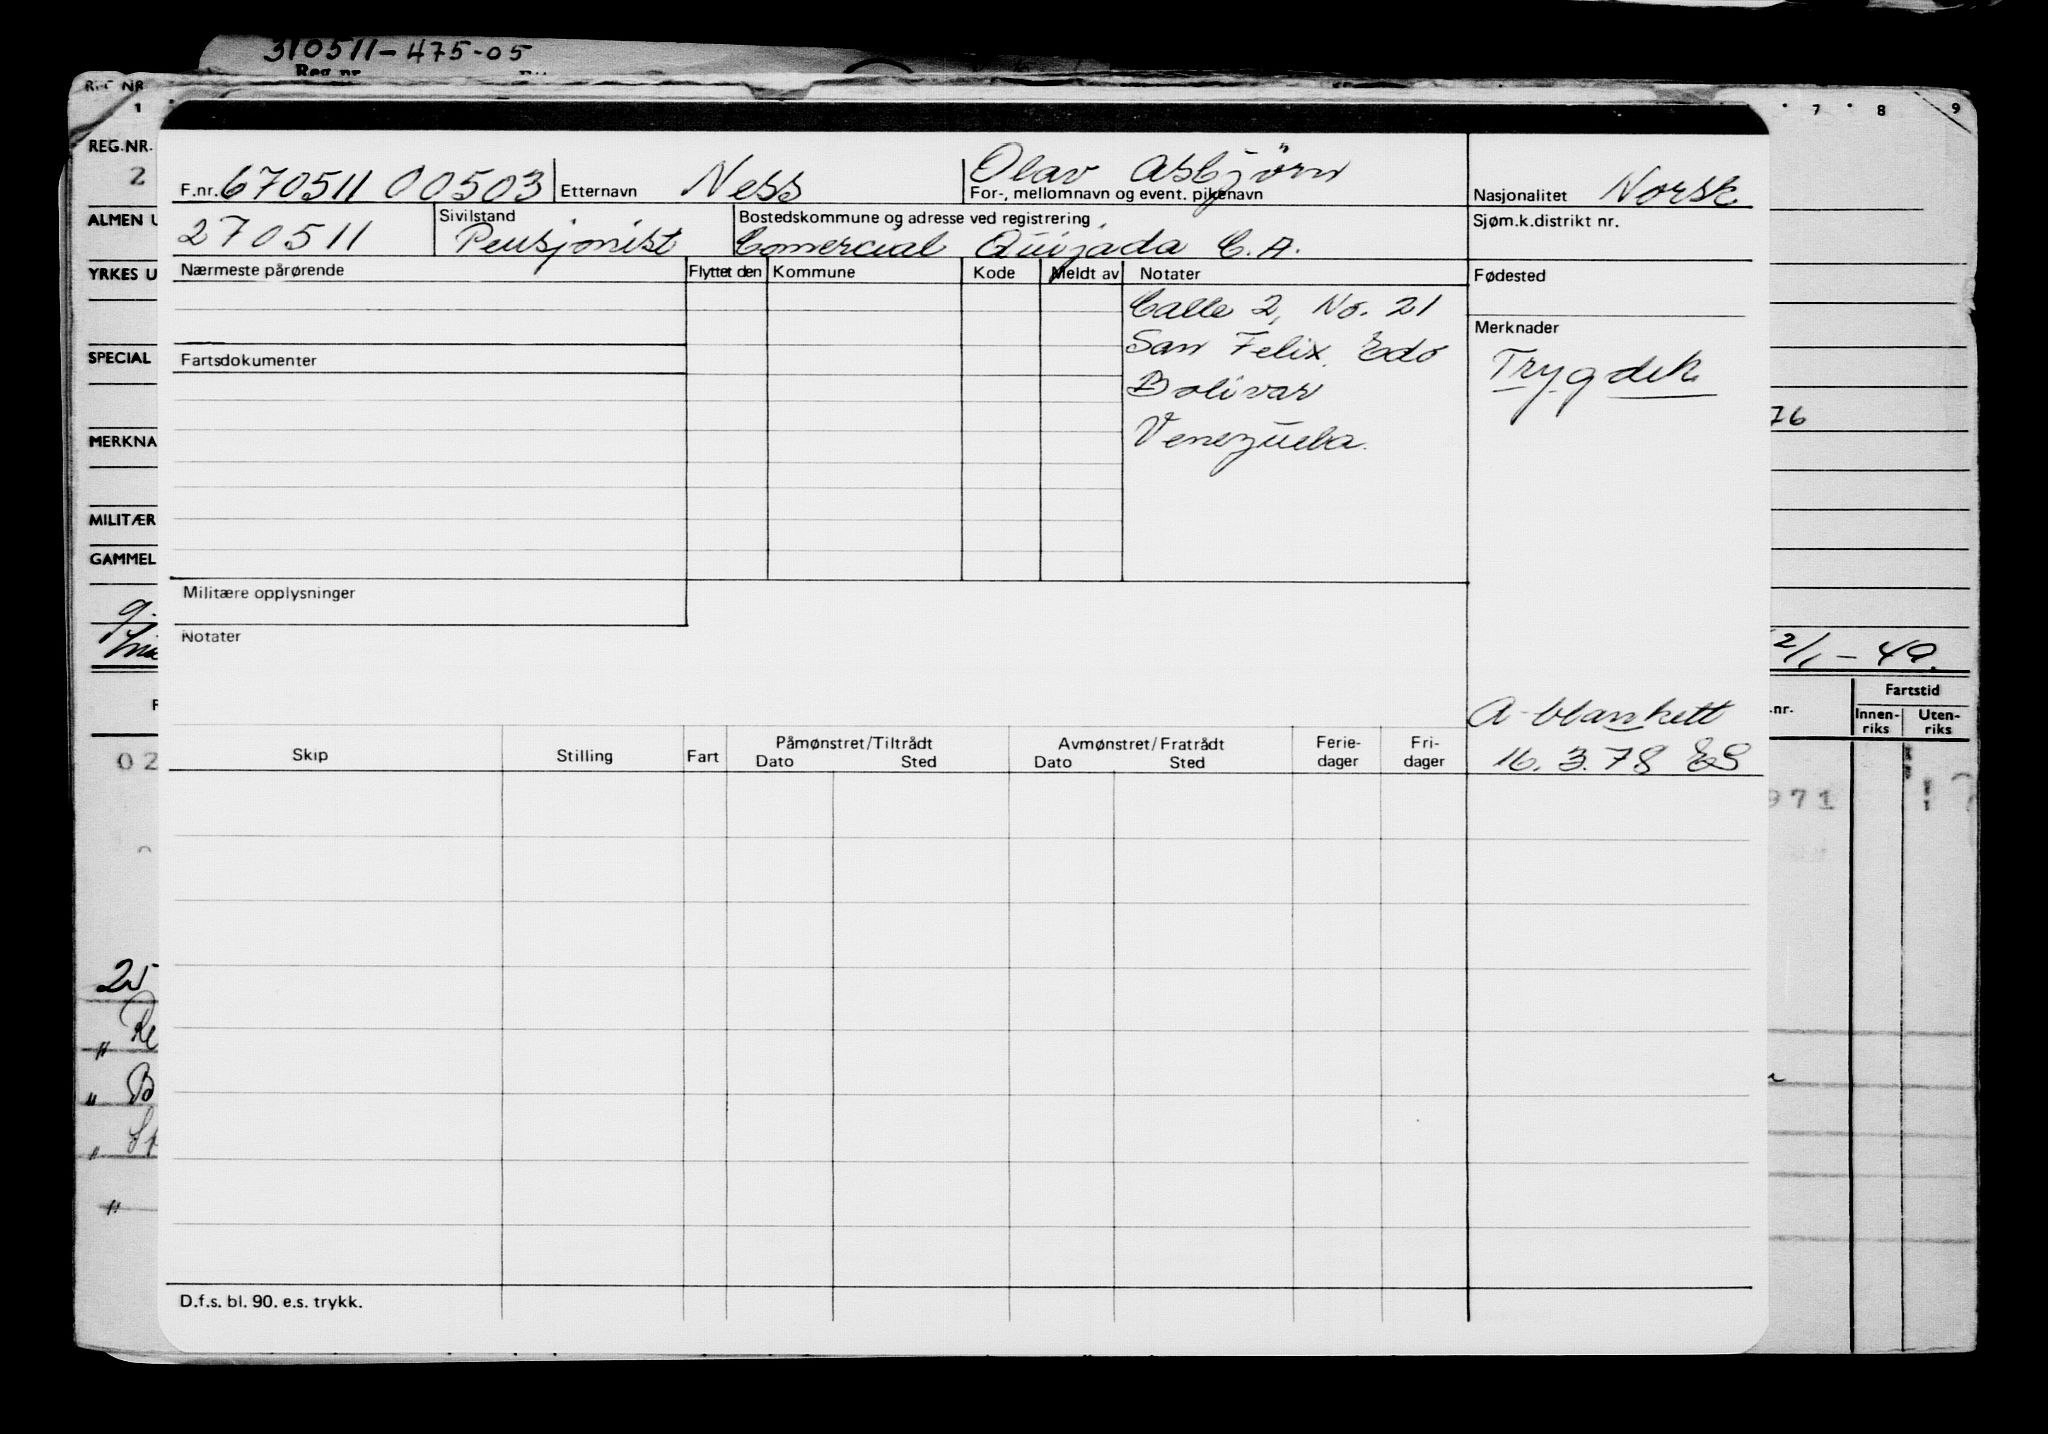 310511-475-05
Reg.nr.
REG NR
1 7 8 9
REG.NR.
2
ALMEN U
YRKES U
SPECIAL
MERKNA
MILITÆR
GAMMEL
F.nr. 670511 00503 Etternavn Ness For-, mellomnavn og event. pikenavn Olav Asbjörn Nasjonalitet Norsk
270511 Sivilstand Pensjonist Bostedskommune og adresse ved registrering Comercial Quijada C.A. Sjøm.k.distrikt nr.
Nærmeste pårørende Flyttet den Kommune Kode Meldt av Notater Fødested
Calle 2, No. 21
San Felix, Edo
Bolivar
Venezuela.
Merknader
Trygdek
Fartsdokumenter
76
Militære opplysninger
Notater
2/1 - 40.
A-blankett
16.3.78 ES
Skip Stilling Fart Påmønstret/Tiltrådt Dato Sted Avmønstret/Fratrådt Dato Sted Ferie-dager Fri-dager
.nr. Fartstid
Innen-riks Uten-riks
02
971
25
" Re
" B
"
"
D.f.s. bl. 90. e.s. trykk.